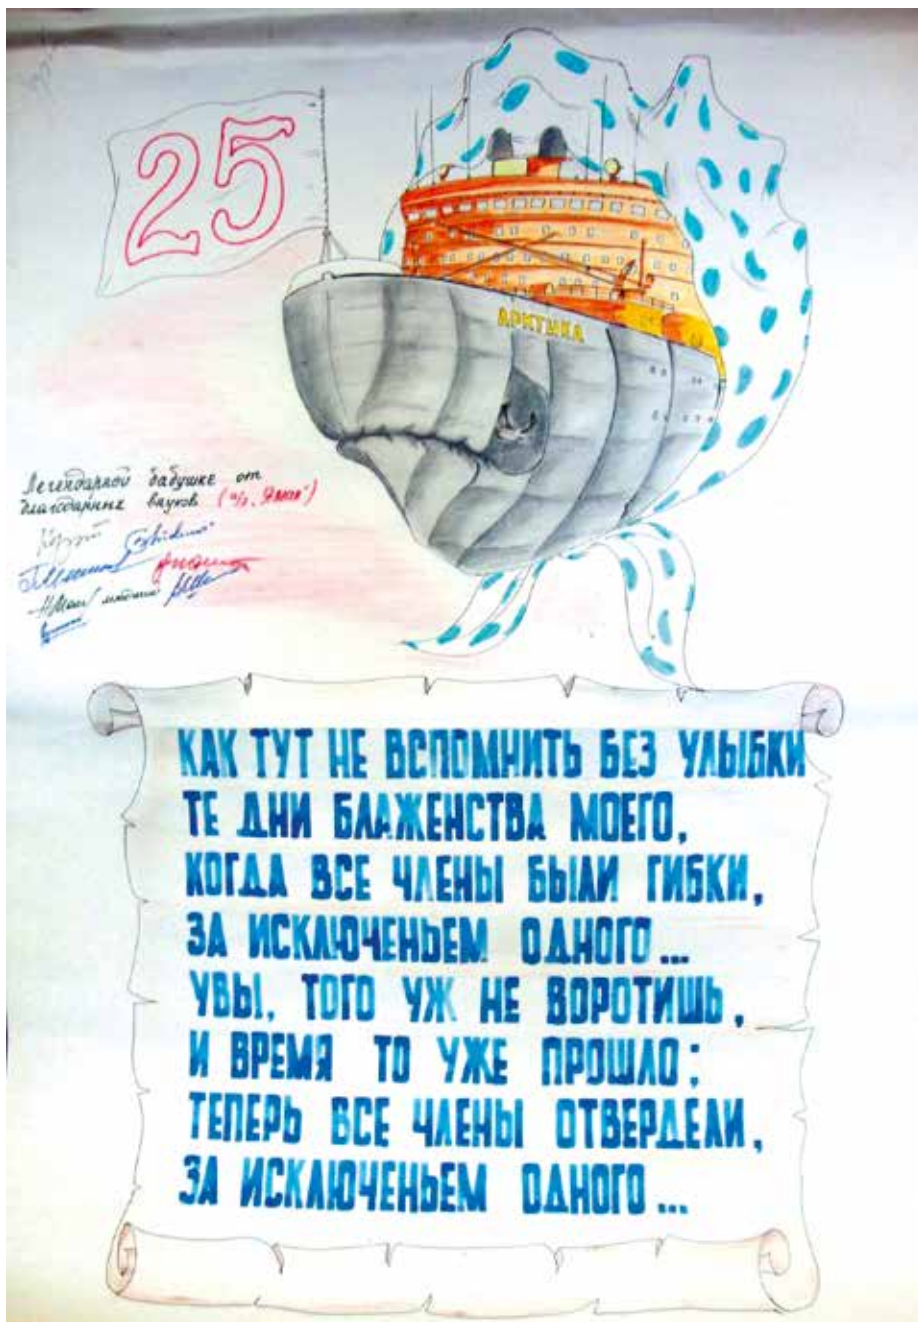 25
АРКТИКА
Легендарной бабушке от
благодарных внуков (а/л „Ямал“)
КАК ТУТ НЕ ВСПОМНИТЬ БЕЗ УЛЫБКИ
ТЕ ДНИ БЛАЖЕНСТВА МОЕГО,
КОГДА ВСЕ ЧЛЕНЫ БЫЛИ ГИБКИ,
ЗА ИСКЛЮЧЕНЬЕМ ОДНОГО...
УВЫ, ТОГО УЖ НЕ ВОРОТИШЬ,
И ВРЕМЯ ТО УЖЕ ПРОШЛО:
ТЕПЕРЬ ВСЕ ЧЛЕНЫ ОТВЕРДЕЛИ,
ЗА ИСКЛЮЧЕНЬЕМ ОДНОГО...